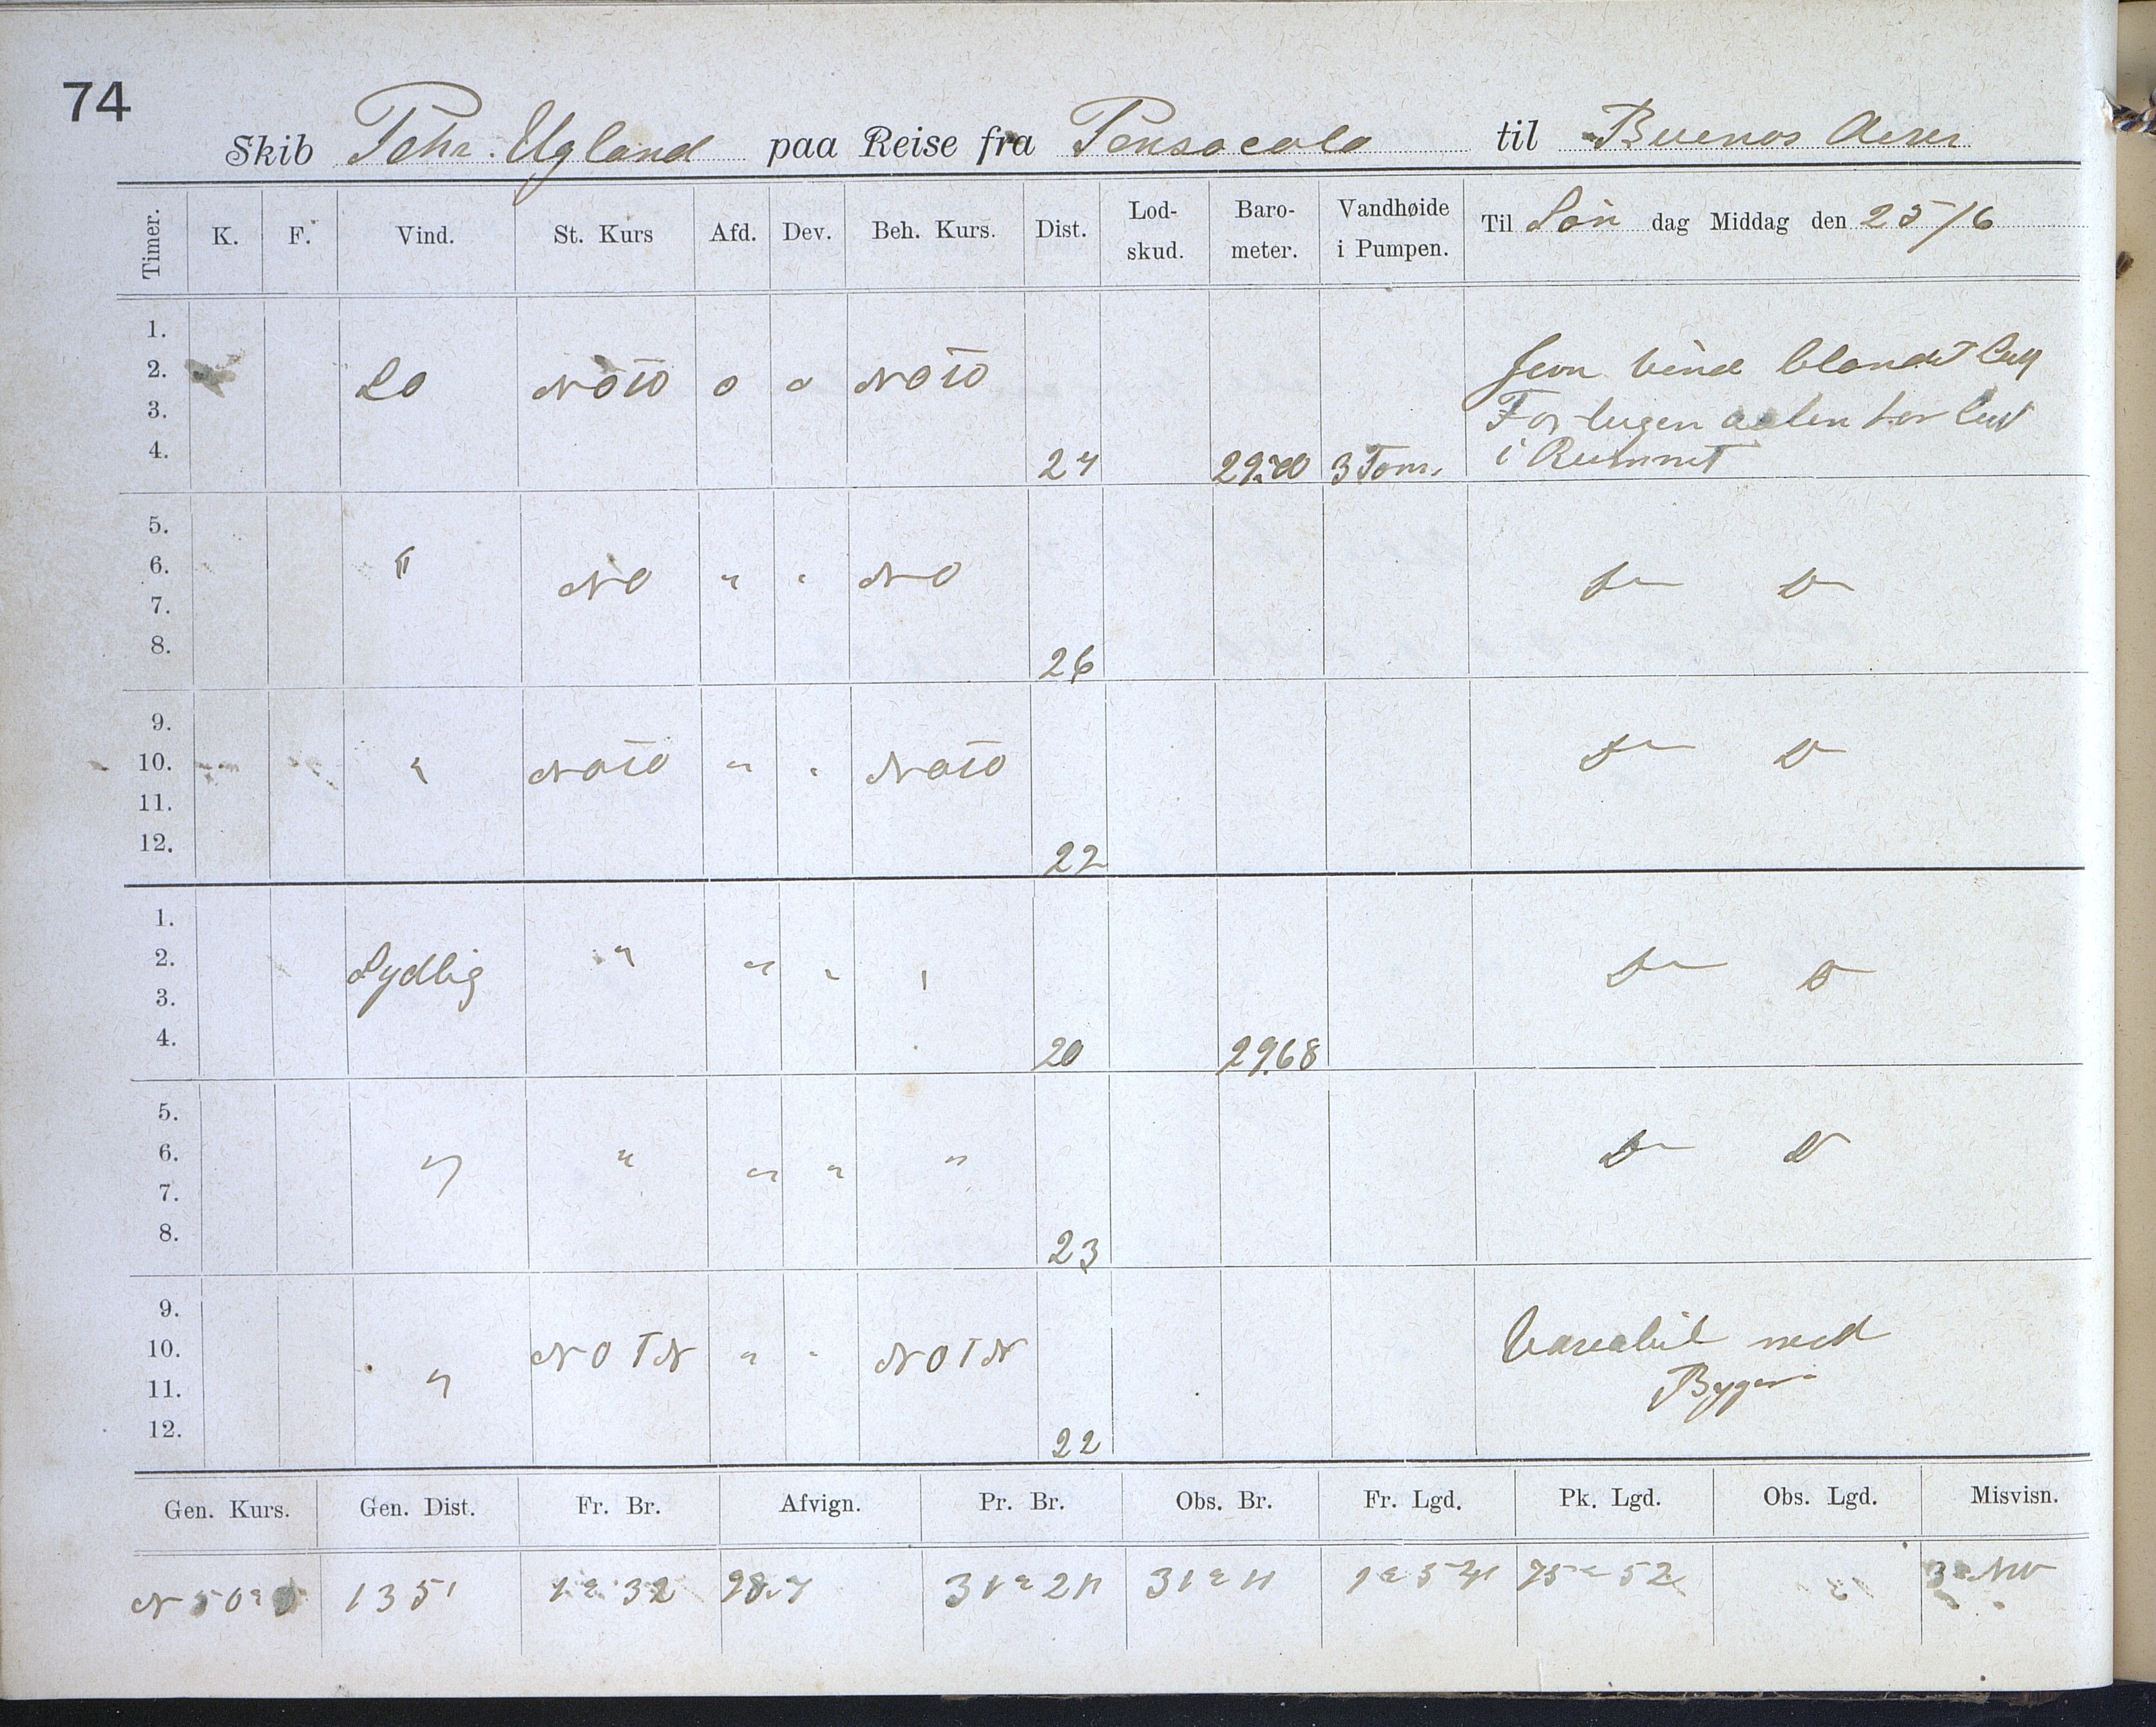 74
Skib Johs. Ugland paa Reise fra Pensacola til Buenos Aires
Timer. K. F. Vind. St. Kurs Afd. Dev. Beh. Kurs. Dist. Lod-skud. Baro-meter. Vandhøide i Pumpen. Til Søn dag Middag den 25/6
1.
2. SO NOtO o o NOtO Jevn Vind blandet Luft
3. For lugen Luft
4. 24 29.70 3 Tom. i Rummet
5.
6. " NO " " NO Do Do
7.
8. 26
9.
10. " NOtO " " NOtO Do Do
11.
12. 22
1.
2. Sydlig " " " " Do Do
3.
4. 20 29.68
5.
6. " " " " " Do Do
7.
8. 23
9.
10. " NOTN " " NOTN Variabil med
11. Byger
12. 22
Gen. Kurs. Gen. Dist. Fr. Br. Afvign. Pr. Br. Obs. Br. Fr. Lgd. Pk. Lgd. Obs. Lgd. Misvisn.
N 50° O 135' 1° 32 98.7 31° 21' 31° 11 1° 54' 75° 52 3° NV